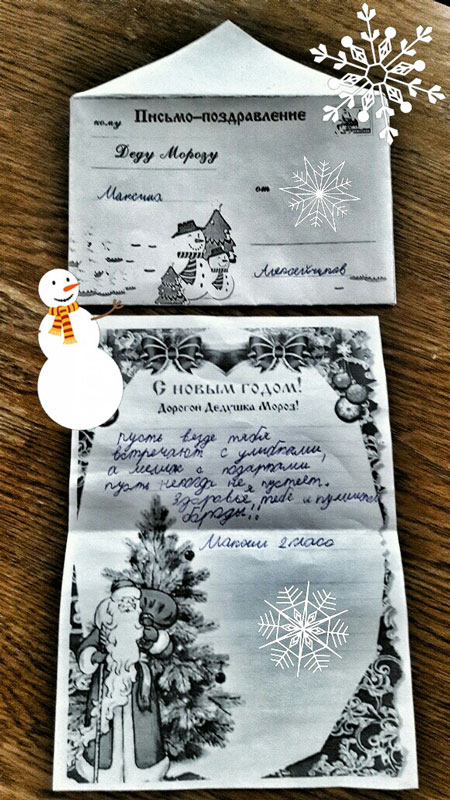 кому Письмо-поздравление
Деду Морозу
Максима
от
С новым годом!
Дорогой Дедушка Мороз!
пусть везде тебя
встречают с улыбками,
а мешок с подарками
пусть некогда не пустеет.
Здоровье тебе и
бароды!!
Максим 2 класа